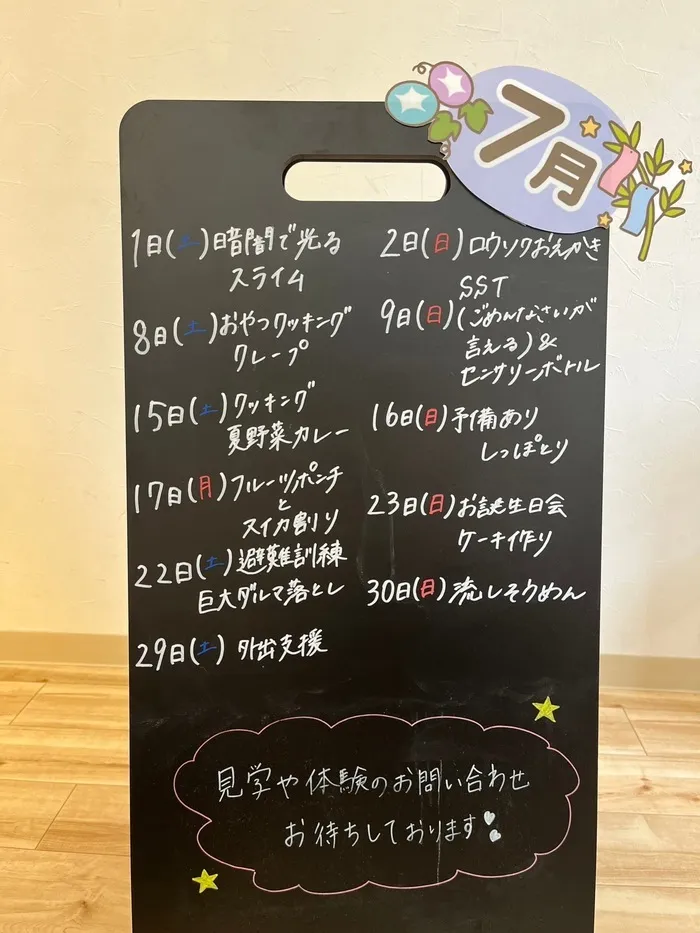 7月
1日(土)暗闇で光る
スライム
8日(土)おやつクッキング
クレープ
15日(土)クッキング
夏野菜カレー
17日(月)フルーツポンチ
と
スイカ割り
22日(土)避難訓練
巨大ダルマ落とし
29日(土)外出支援
2日(日)ロウソクおえかき
SST
9日(日)(ごめんなさいが
言える)&
センサリーボトル
16日(日)予備あり
しっぽとり
23日(日)お誕生日会
ケーキ作り
30日(日)流しそうめん
見学や体験のお問い合わせ
お待ちしております